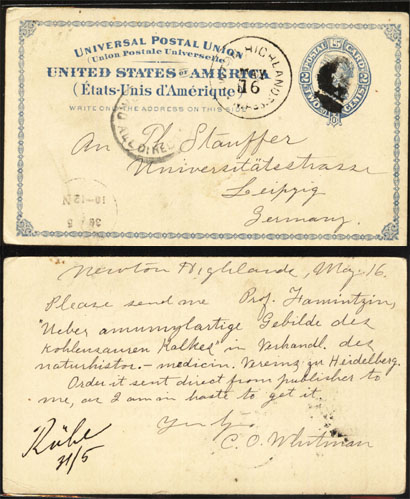 UNIVERSAL POSTAL UNION
(Union Postale Universelle)
UNITED STATES OF AMERICA
(États-Unis d'Amérique)
WRITE ONLY THE ADDRESS ON THIS SIDE
HIGHLANDS
16
MASS.
U.S. POSTAL CARD
TWO CENTS
ALL DIREC
An Th. Stauffer
Universitätsstrasse
Leipzig
Germany.
Newton Highlands, May 16.
Please send me Prof. Famintzin,
"Ueber amumylartige Gebilde des
Kohlensauren Kalkes" in Verhandl. des
naturhistor. - medicin. Vereins zu Heidelberg.
Order it sent direct from publisher to
me, as I am in haste to get it.
C. O. Whitman
31/5